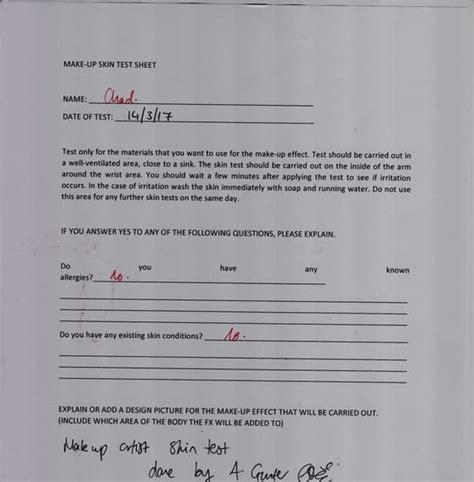 MAKE-UP SKIN TEST SHEET
NAME: Chad.
DATE OF TEST: 14/3/17
Test only for the materials that you want to use for the make-up effect. Test should be carried out in
a well-ventilated area, close to a sink. The skin test should be carried out on the inside of the arm
around the wrist area. You should wait a few minutes after applying the test to see if irritation
occurs. In the case of irritation wash the skin immediately with soap and running water. Do not use
this area for any further skin tests on the same day.
IF YOU ANSWER YES TO ANY OF THE FOLLOWING QUESTIONS, PLEASE EXPLAIN.
Do you have any known
allergies? No.
Do you have any existing skin conditions? No.
EXPLAIN OR ADD A DESIGN PICTURE FOR THE MAKE-UP EFFECT THAT WILL BE CARRIED OUT.
(INCLUDE WHICH AREA OF THE BODY THE FX WILL BE ADDED TO)
Make up artist skin test
done by A